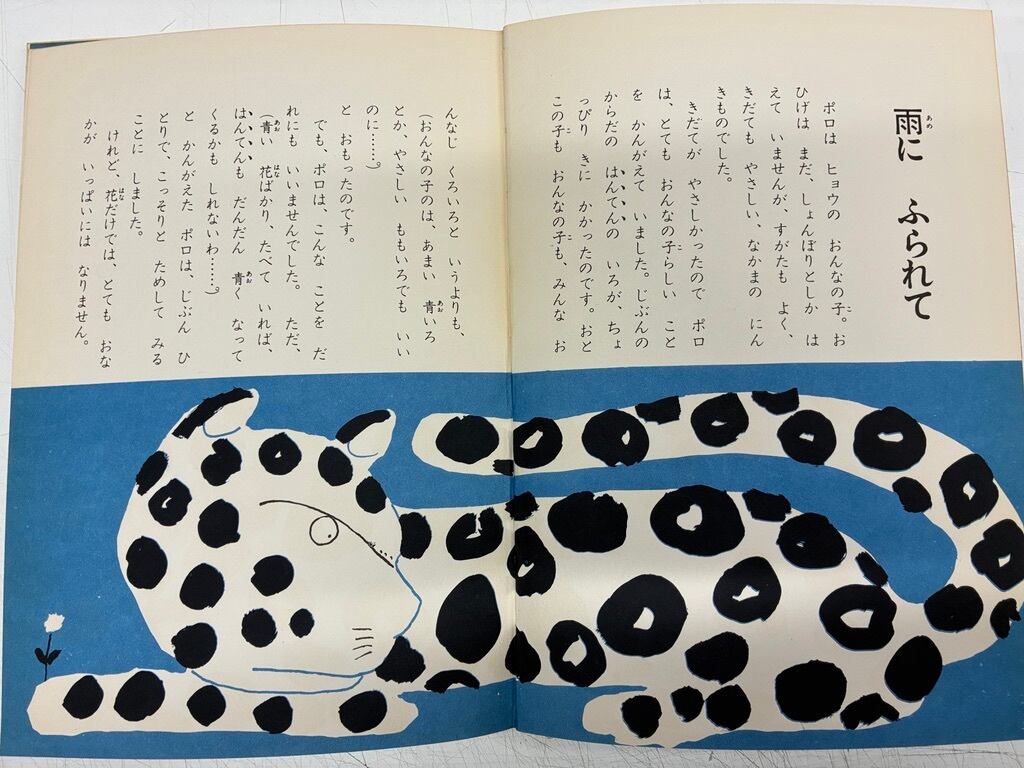 雨に ふられて
ポロは ヒョウの おんなの子。お
ひげは まだ、しょんぼりとしか は
えて いませんが、すがたも よく、
きだても やさしい、なかまの にん
きものでした。
きだてが やさしかったので ポロ
は、とても おんなの子らしい こと
を かんがえて いました。じぶんの
からだの はんてんの いろが、ちょ
っぴり きに かかったのです。おと
この子も おんなの子も、みんな お
んなじ くろいろと いうよりも、
(おんなの子のは、あまい 青いろ
とか、やさしい ももいろでも いい
のに……。)
と おもったのです。
でも、ポロは、こんな ことを だ
れにも いいませんでした。 ただ、
(青い 花ばかり、たべて いれば、
はんてんも だんだん 青く なって
くるかも しれないわ……。)
と かんがえた ポロは、じぶん ひ
とりで、こっそりと ためして みる
ことに しました。
けれど、花だけでは、とても おな
かが いっぱいには なりません。